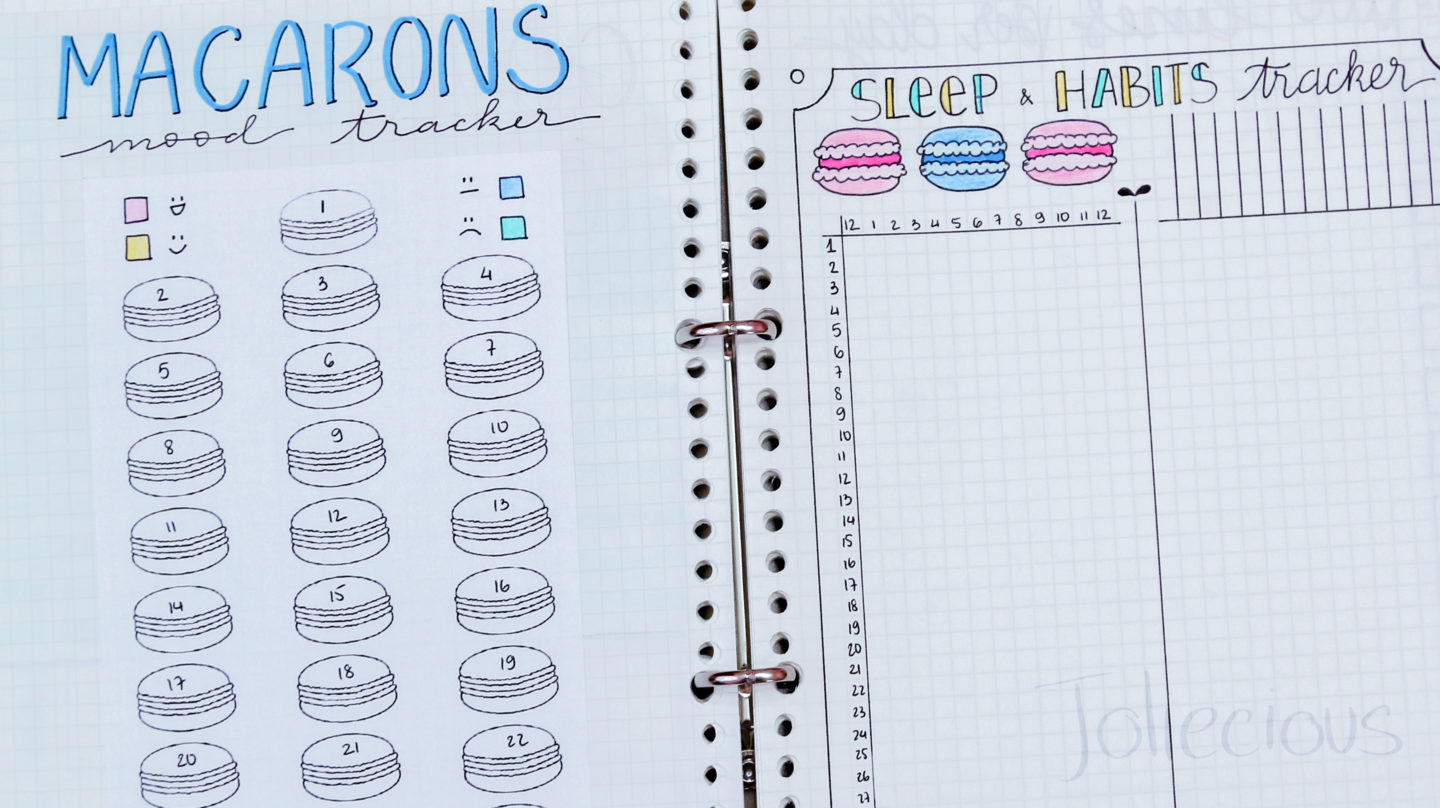 MACARONS
mood tracker
1
2 3 4
5 6 7
8 9 10
11 12 13
14 15 16
17 18 19
20 21 22
SLEEP & HABITS tracker
12 1 2 3 4 5 6 7 8 9 10 11 12
1
2
3
4
5
6
7
8
9
10
11
12
13
14
15
16
17
18
19
20
21
22
23
24
25
26
27
Jollecious